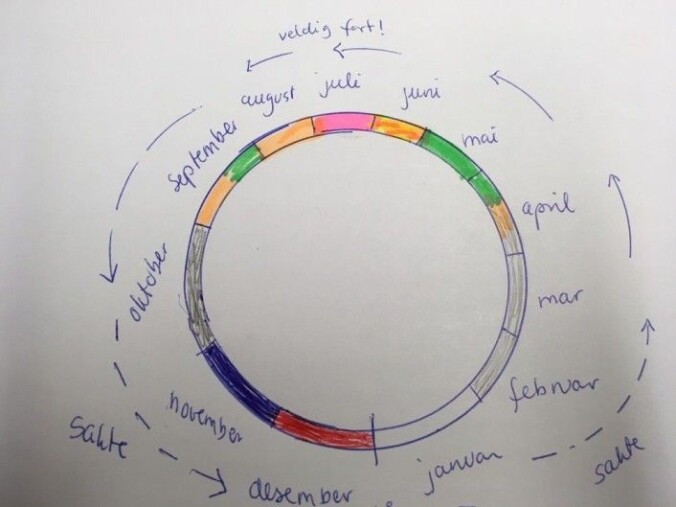 veldig fort!
august
juli
juni
september
mai
april
oktober
mar
februar
november
Sakte
desember
januar
sakte